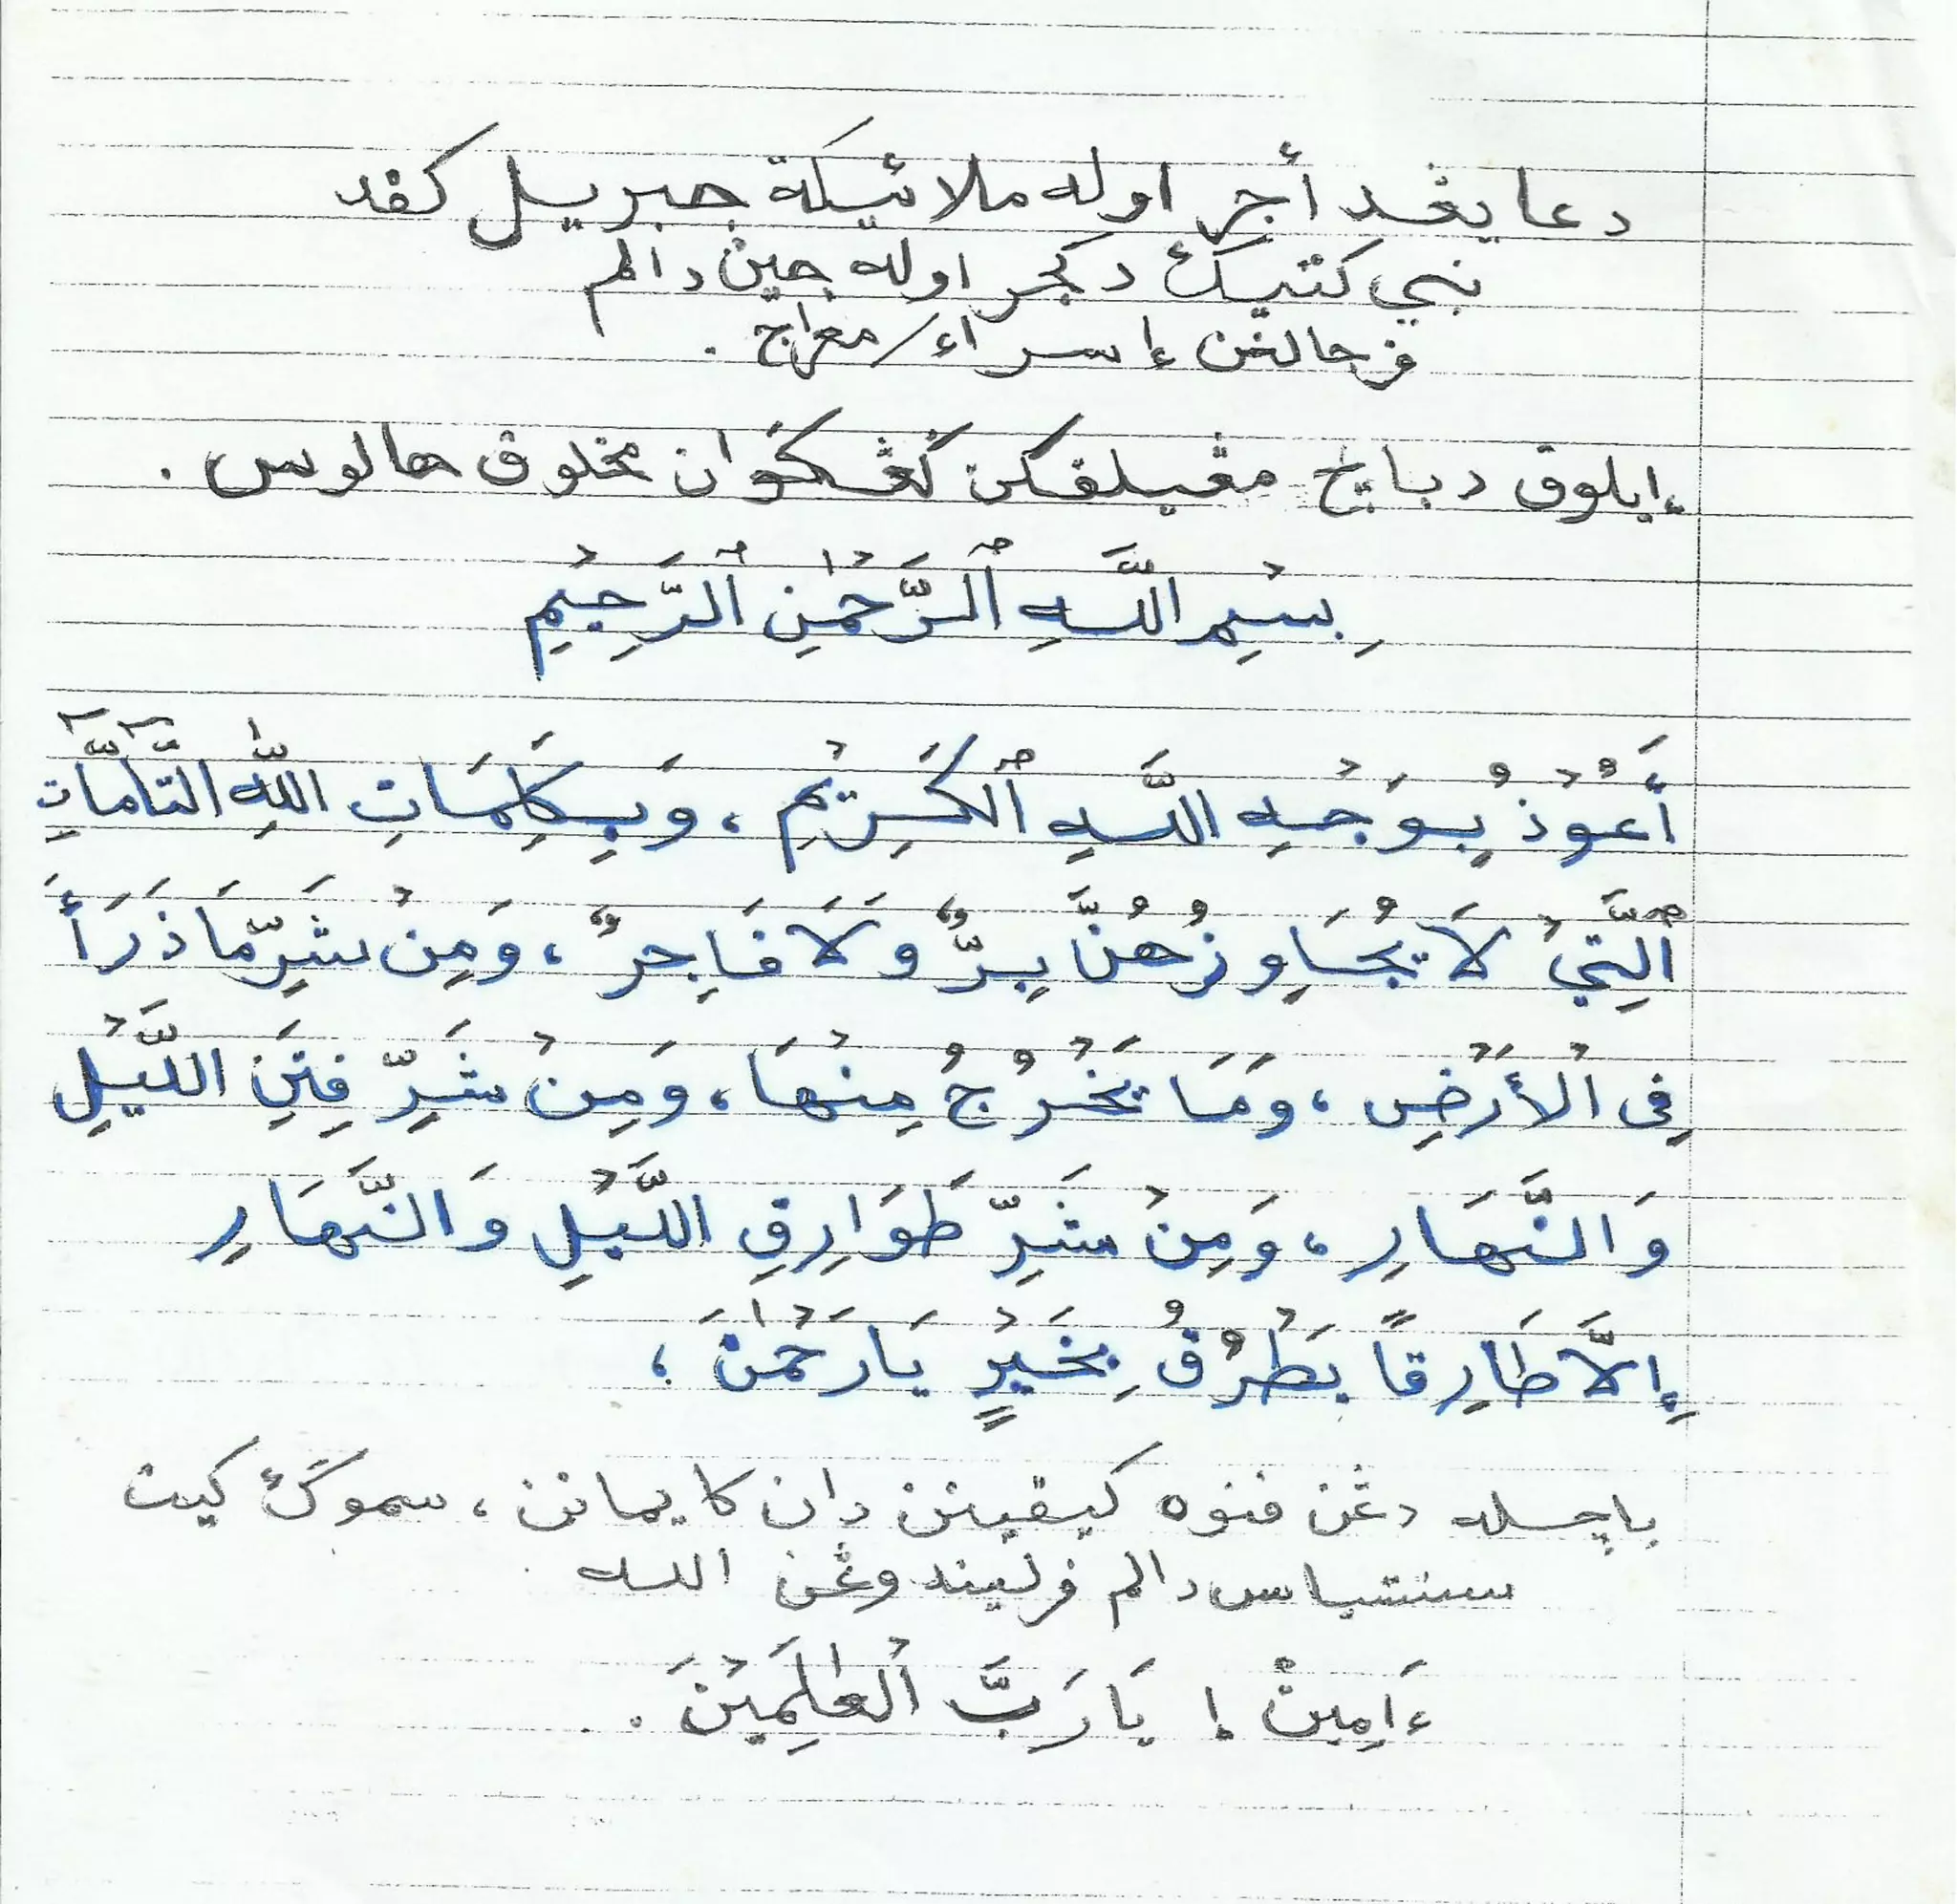 دعا يڠد أجر اوله ملائيكة جبريل کفد
نبي کتيک دکجر اوله جين دالم
فرجالنن إسراء/معراج .
إيلوق دباچ مڠيلقکن ݢڠݢوان مخلوق هالوس .
بِسْمِ اللَّهِ ٱلرَّحْمٰنِ ٱلرَّحِيْمِ
أَعُوْذُ بِوَجْهِ اللَّهِ ٱلْكَرِيْمِ ، وَبِكَلِمَاتِ اللّٰهِ التَّآمَّآتِ
ٱلَّتِيْ لَا يُجَاوِزُهُنَّ بِرٌّ وَلَا فَاجِرٌ ، وَمِنْ شَرِّ مَا ذَرَأَ
فِى الْأَرْضِ ، وَمَا يَخْرُجُ مِنْهَا ، وَمِنْ شَرِّ فِتَنِ اللَّيْلِ
وَالنَّهَارِ ، وَمِنْ شَرِّ طَوَارِقِ اللَّيْلِ وَالنَّهَارِ
إِلَّا طَارِقًا يَطْرُقُ بِخَيْرٍ يَا رَحْمٰنَ ؛
باچله دڠن فنوه کيقينن دان کايمانن ، سموݢ کيت
سنتياس دالم فرليندوڠن الله
ءَامِينْ ! يَا رَبَّ الْعٰلَمِيْنَ .